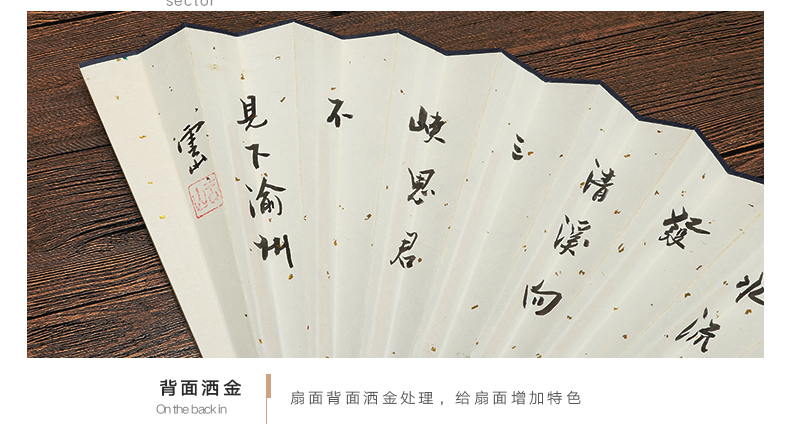 sector
水流
發
清溪向
三
峽思君
不
見下渝州
雲山
背面洒金
On the back in
扇面背面洒金处理，给扇面增加特色